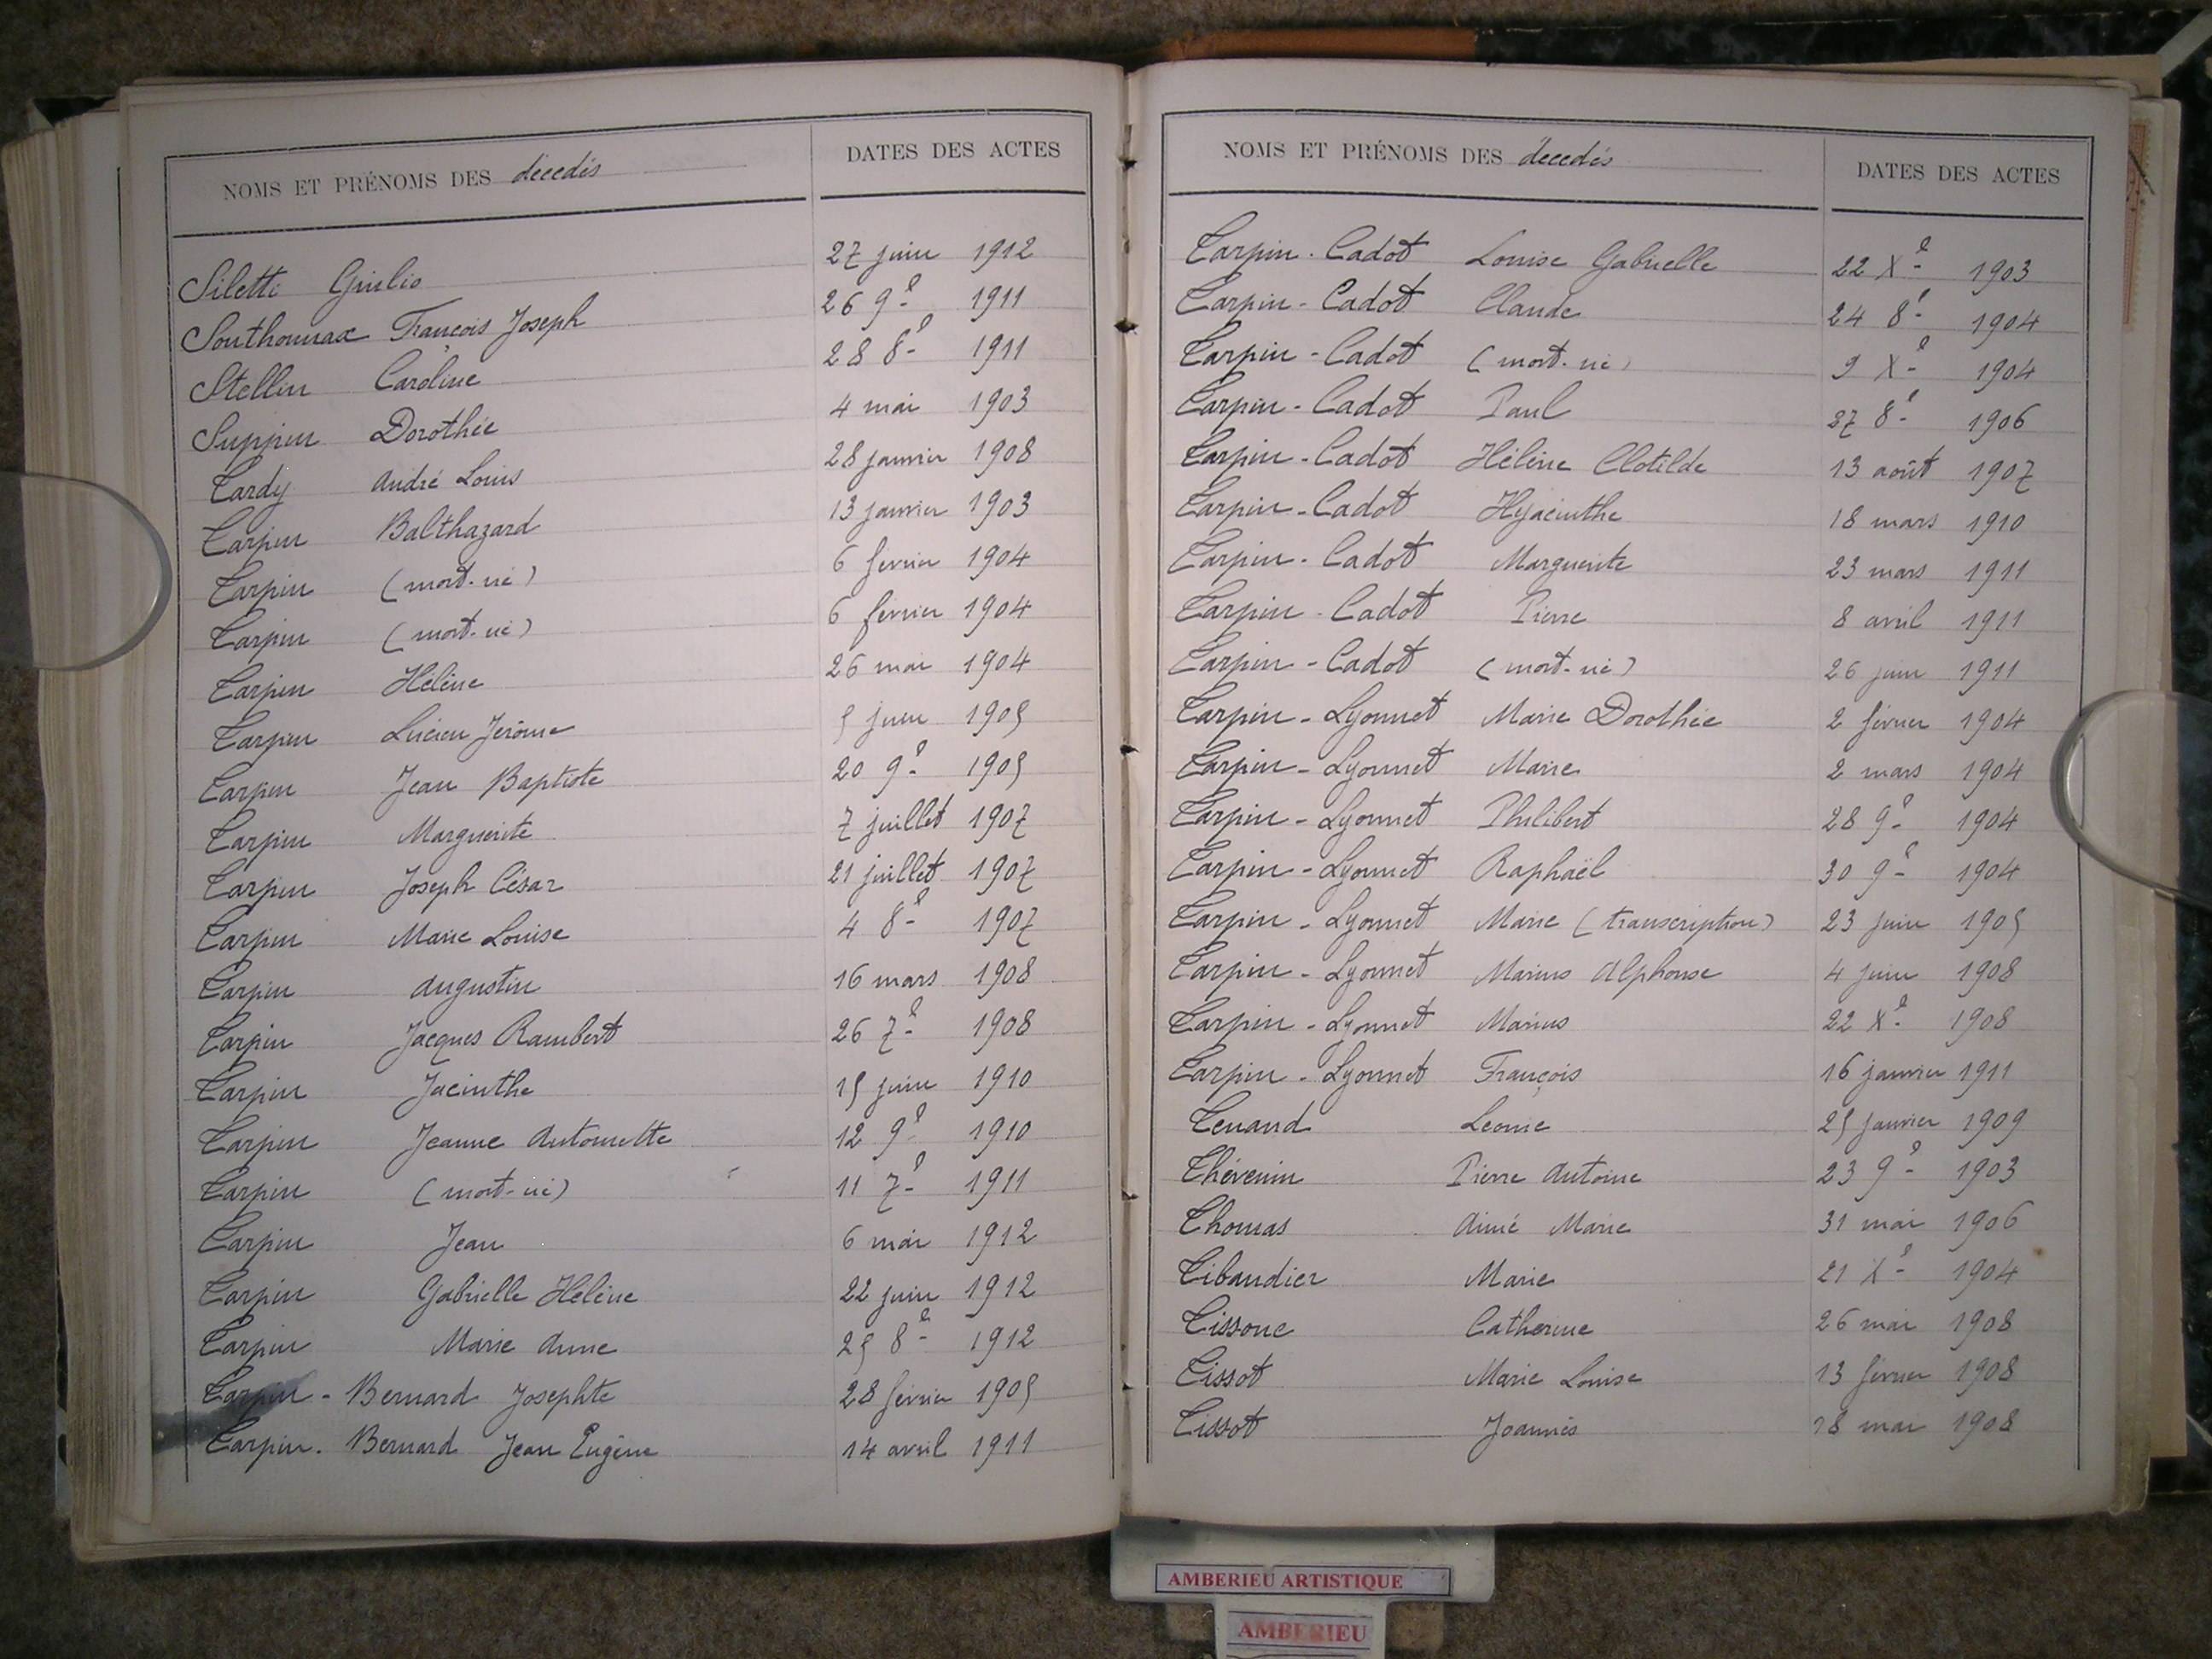 NOMS ET PRÉNOMS DES décedés DATES DES ACTES
Siletti Giulio 27 juin 1912
Southonnax François Joseph 26 9e 1911
Stellin Caroline 28 8e 1911
Suppin Dorothée 4 mai 1903
Tardy André Louis 28 janvier 1908
Tarpin Balthazard 13 janvier 1903
Tarpin (mort-né) 6 février 1904
Tarpin (mort-né) 6 février 1904
Tarpin Hélène 26 mai 1904
Tarpin Lucien Jérôme 5 juin 1905
Tarpin Jean Baptiste 20 9e 1905
Tarpin Marguerite 7 juillet 1907
Tarpin Joseph César 21 juillet 1907
Tarpin Marie Louise 4 8e 1907
Tarpin Augustin 16 mars 1908
Tarpin Jacques Rambert 26 7e 1908
Tarpin Jacinthe 15 juin 1910
Tarpin Jeanne Antoinette 12 9e 1910
Tarpin (mort-né) 11 7e 1911
Tarpin Jean 6 mai 1912
Tarpin Gabrielle Hélène 22 juin 1912
Tarpin Marie Anne 25 8e 1912
Tarpin - Bernard Josephte 28 février 1905
Tarpin - Bernard Jean Eugène 14 avril 1911
NOMS ET PRÉNOMS DES décedés DATES DES ACTES
Tarpin - Cadot Louise Gabrielle 22 Xe 1903
Tarpin - Cadot Claude 24 8e 1904
Tarpin - Cadot (mort-né) 9 Xe 1904
Tarpin - Cadot Paul 27 8e 1906
Tarpin - Cadot Hélène Clotilde 13 août 1907
Tarpin - Cadot Hyacinthe 18 mars 1910
Tarpin - Cadot Marguerite 23 mars 1911
Tarpin - Cadot Pierre 8 avril 1911
Tarpin - Cadot (mort-né) 26 juin 1911
Tarpin - Lyonnet Marie Dorothée 2 février 1904
Tarpin - Lyonnet Marie 2 mars 1904
Tarpin - Lyonnet Philibert 28 9e 1904
Tarpin - Lyonnet Raphaël 30 9e 1904
Tarpin - Lyonnet Marie (transcription) 23 juin 1905
Tarpin - Lyonnet Marius Alphonse 4 juin 1908
Tarpin - Lyonnet Marius 22 Xe 1908
Tarpin - Lyonnet François 16 janvier 1911
Tenand Leonie 25 janvier 1909
Thévenin Pierre Antoine 23 9e 1903
Thomas Aimé Marie 31 mai 1906
Tibaudier Marie 21 Xe 1904
Tissone Catherine 26 mai 1908
Tissot Marie Louise 13 février 1908
Tissot Joannès 18 mai 1908
AMBERIEU ARTISTIQUE
AMBERIEU